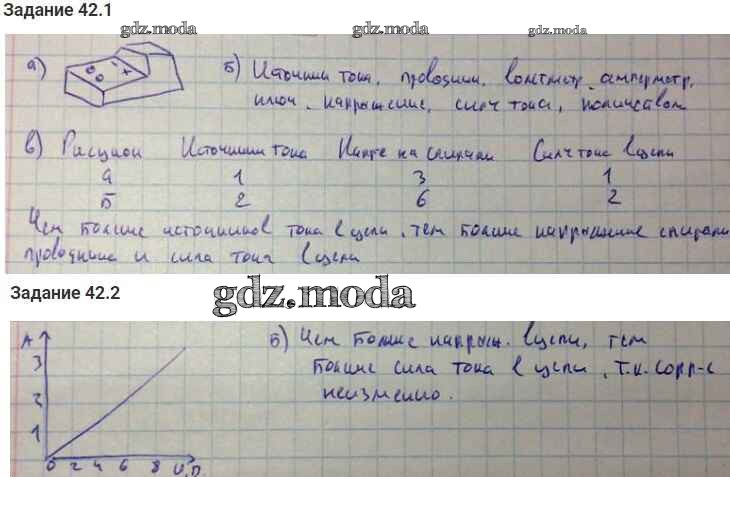 Задание 42.1
gdz.moda gdz.moda gdz.moda
а) б) Источники тока, проводники, вольтметр, амперметр,
ключ, напряжение, силу тока, количеством
в) Рисунки Источники тока Напр на спирали Сила тока в цепи
А 1 3 1
Б 2 6 2
Чем больше источников тока в цепи, тем больше напряжение спирали
проводника и сила тока в цепи
Задание 42.2
gdz.moda
А
3
2
1
0 2 4 6 8 U,
Б) Чем больше напряж. в цепи, тем
больше сила тока в цепи, т.к. сопр-е
неизменно.
gdz.moda gdz.moda gdz.moda